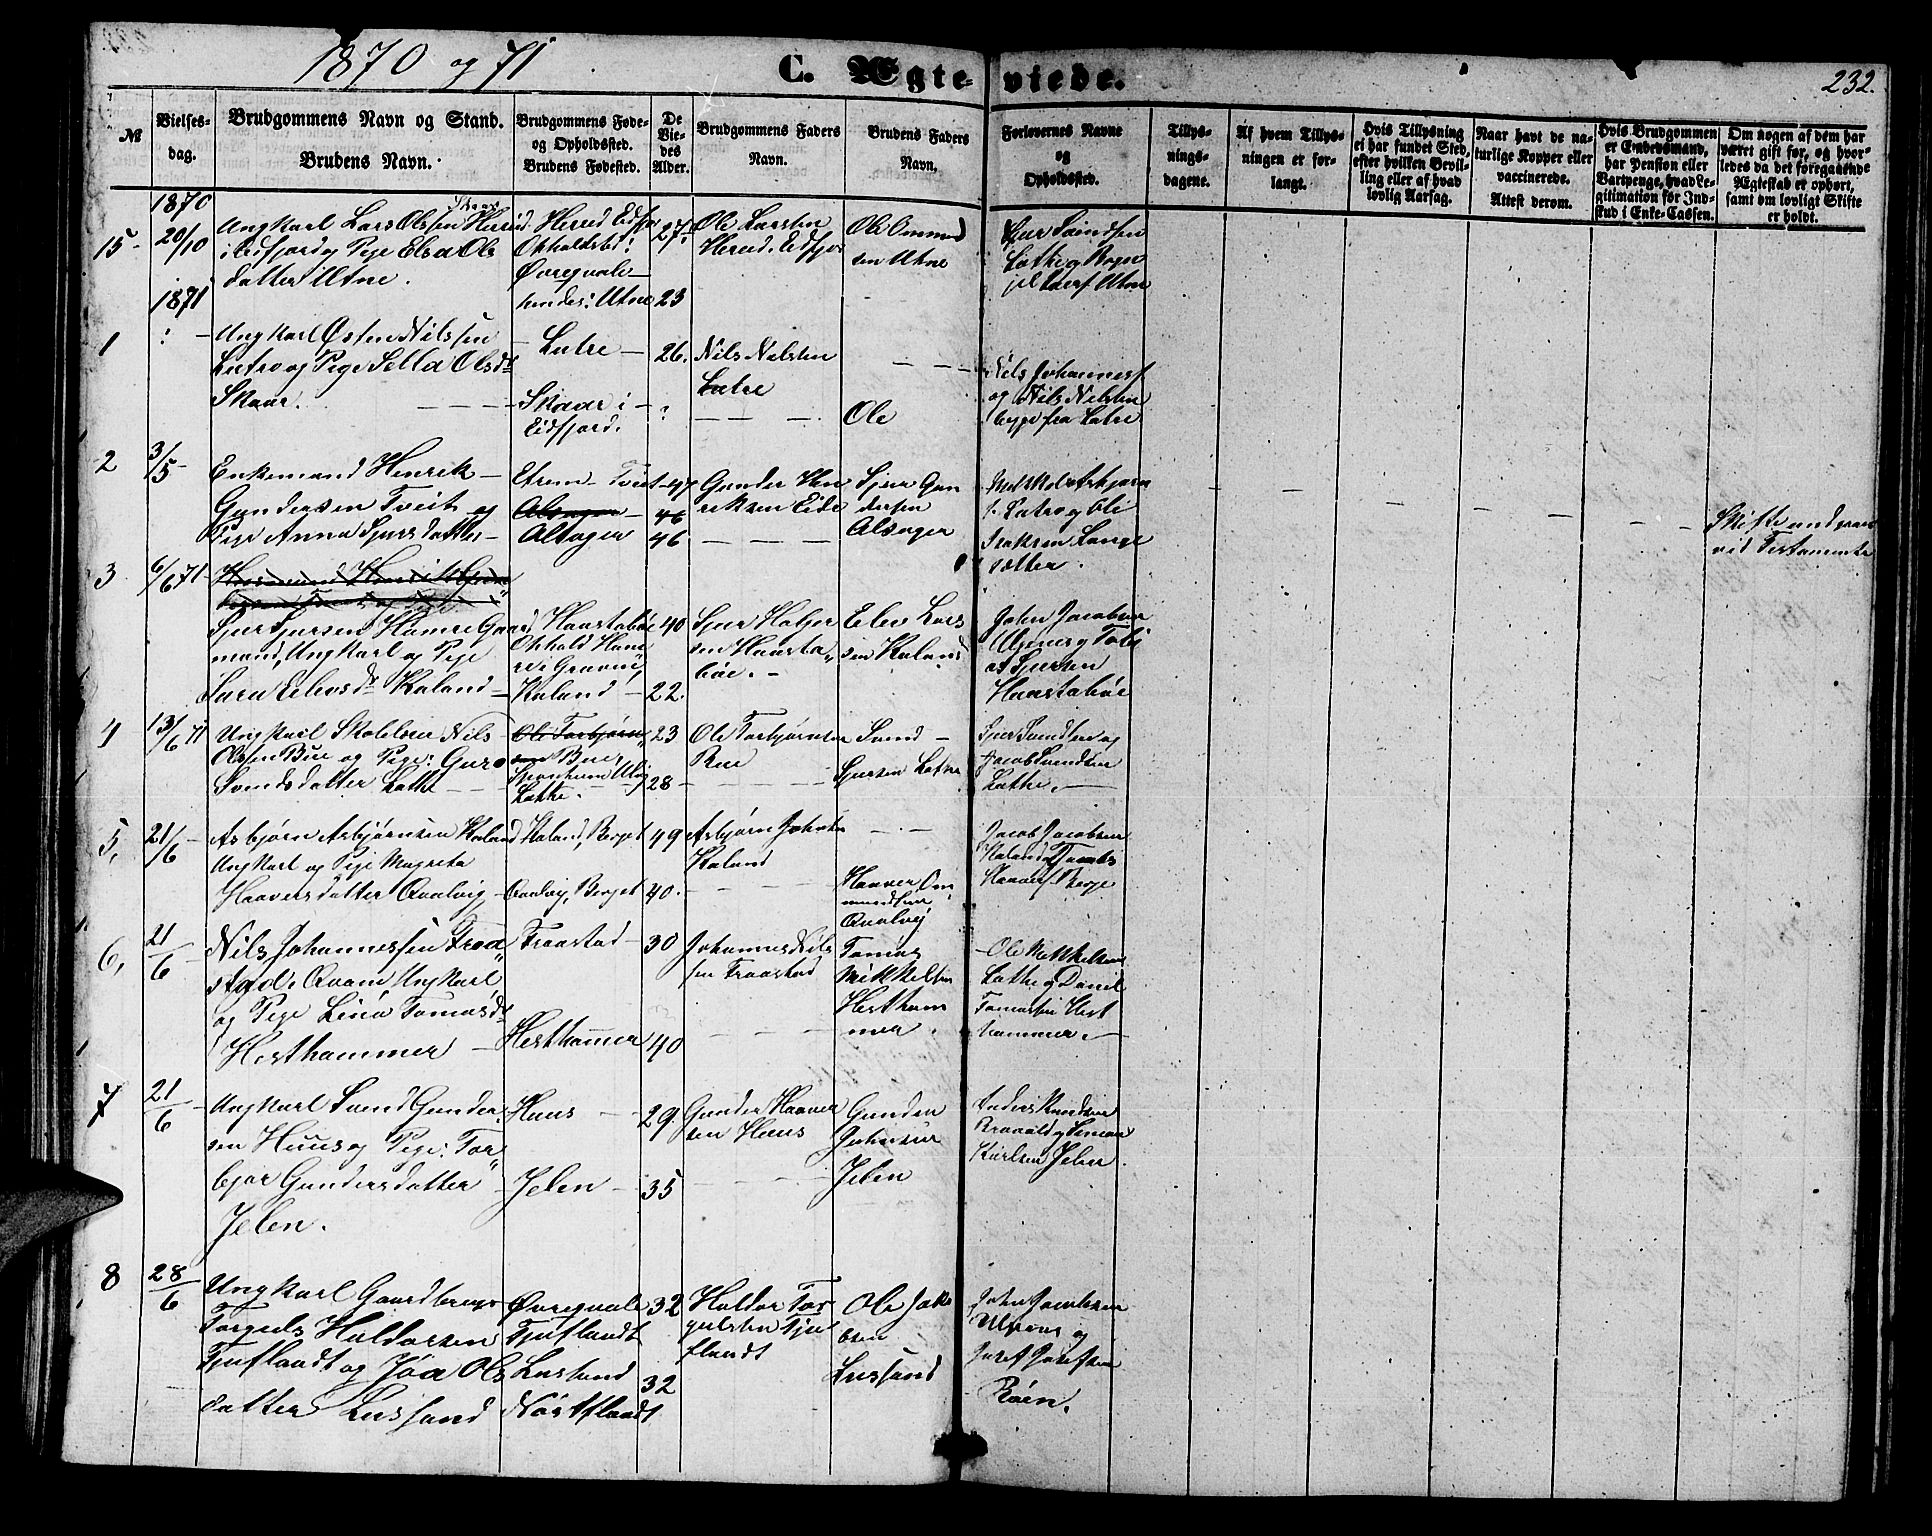 1870 og 71
C. Ægteviede.
232.
№
Vielses-
dag.
Brudgommens Navn og Stand.
Brudens Navn.
Brudgommens Føde-
og Opholdssted.
Brudens Fødested.
De
Vie-
des
Alder.
Brudgommens Faders
Navn.
Brudens Faders
Navn.
Forlovernes Navne
og
Opholdssted.
Tillys-
nings-
dagene.
Af hvem Tillys-
ningen er for-
langt.
Hvis Tillysning
ei har fundet Sted,
efter hvilken Bevil-
ling eller af hvad
lovlig Aarsag.
Naar havt de na-
turlige Kopper eller
vaccinerede.
Attest derom.
Hvis Brudgommen
er Embedsmand,
har Pension eller
Vartpenge, hvad Le-
gitimation for Ind-
skud i Enke-Cassen.
Om nogen af dem har
været gift før, og hvor-
ledes da det foregaaende
Ægteskab er ophørt,
samt om lovligt Skifte
er holdt.
1870
15
20/10
Ungkarl Lars Olssen Hereid
i Eidfjord og Pige Elsa Ols
datter Utne.
Hereid Eidfjor
Opholdsted:
Øvreqvale
hendes: Utne
27
23
Ole Larssen
Hereid. Eidfjor
Ole Ommund
sen Utne
Lothe og
Utne
1871
1
Ungkarl Østen Nilssen
Lutro og Pige Sella Olsdr
Skaar.
Lutre
Skaar i
Eidfjord.
26.
?
Nils Nielsen
Lutre
Ole
Nils Johannes
og Nils Nilsen
begge fra Lutre
2
3/5
Enkemand Henrik
Gundersen Tveit og
Pige Anna Sjursdatter
Tveit
Alsager
Alsager
47
46
46
Gunder Hen
riksen Eide
Sjur Gun
dersen
Alsager
Isaksen Lange
sætter.
vid Testamente
3
6/6 71
Sjur Sjursen Hamre Gaard
mand, Ungkarl og Pige
Sara Eilevsdr Kaland
Haastabøe
Ophold Ham
re i Graven,
Kaland
40
22.
Sjur Holger
sen Haasta
bøe.
Elev Lars
sen Kaland
John Jacobsen
as Sjursen
Haastabøe
4
13/6 71
Ungkarl Skolelærer Nils
Olssen Bue og Pige: Guro
Svendsdatter Lothe
Ole Torbjørn
sen Bue,
Lothe.
23
28
Ole Torbjørnsen
Bue
Svend
Sjursen Lothe
Sjur Svendsen og
Jacob Svendsen
Lothe.
5,
21/6
Asbjørn Asbjørnsen Kaland
Ungkarl og Pige Magreta
Haaversdatter Qvalvig
Kaland, Berget
Qvalvig, Berget
49
40.
Asbjørn Johns
Kaland
Haaver Om
mundsen
Qvalvig
Jacob Jacobsen
Kaland
Haavers Berge
6,
21/6
Nils Johannessen Traa
stad i Qvam Ungkarl
og Pige Lina Tomasdr
Hesthammer
Traastad
Hesthamer
30
40
Johannes Nils
sen Traastad
Tomas
Mikkelsen
Hestham
mer.
Ole Mikkelsen
Lothe og Daniel
Tomassen Hest
hammer.
7
21/6
Ungkarl Svend Gunder
sen Huus og Pige: Tor
bjør Gundersdatter
Jelen.
Huus
Jelen
29.
35
Gunder Haaver
sen Huus
Gunder
Johnsen
Jelen
Anders Knudsen
Jelen
8
28/6
Ungkarl Gaardbruger
Torgeils Haldorsen
Tjuflaadt og Jøa Ols
datter Lussand
Øvreqvale
Tjuflandt
Lussand
32
32
Haldor Tor
geilsen Tju
flandt
Ole Jako
bsen
Lussand
John Jacobsen
og
Josef Josefsen
Røen.